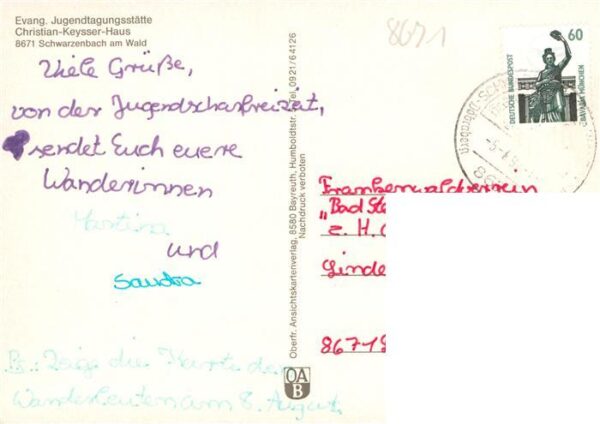 Evang. Jugendtagungsstätte
Christian-Keysser-Haus
8671 Schwarzenbach am Wald
8671
Viele Grüße,
von der Jugendscharfreizeit,
sendet Euch euere
Wanderinnen
Martina
und
Sandra
Ps.: Zeige die Karte den
Wanderleuten am 8. August
Oberfr. Ansichtskartenverlag, 8580 Bayreuth, Humboldtstr. Tel. 0921/64126
Nachdruck verboten
OAB
60
DEUTSCHE BUNDESPOST
BAVARIA MÜNCHEN
Frankenwaldverein
"Bad Ste
z. H.
Linde
8671